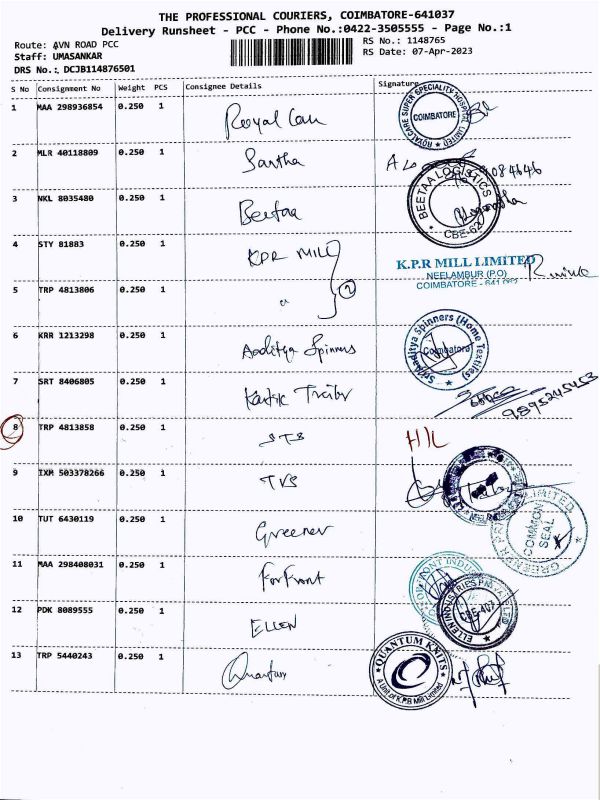 THE PROFESSIONAL COURIERS, COIMBATORE-641037
Delivery Runsheet - PCC - Phone No.:0422-3505555 - Page No.:1
Route: AVN ROAD PCC
RS No.: 1148765
Staff: UMASANKAR
RS Date: 07-Apr-2023
DRS No.: DCJB114876501
S No Consignment No Weight PCS Consignee Details Signature
1 MAA 298936854 0.250 1 Royal Care
ROYALCARE SUPER SPECIALITY HOSPITAL LIMITED COIMBATORE
2 MLR 40118809 0.250 1 Santha
3 NKL 8035480 0.250 1 Beetaa
BEETAA LOGISTICS CBE-62
4 STY 81883 0.250 1 KPR MILL
K.P.R MILL LIMITED
NEELAMBUR (P.O)
COIMBATORE - 641
5 TRP 4813806 0.250 1 " 2
6 KRR 1213298 0.250 1 Aaditya Spinners
Sri Aaditya Spinners (Home Textiles) Coimbatore
7 SRT 8406805 0.250 1 Kartik
9895245453
8 TRP 4813858 0.250 1 STS
9 IXM 503378266 0.250 1 TVS
10 TUT 6430119 0.250 1 Greener
LIMITED COMMON SEAL
11 MAA 298408031 0.250 1 Forfront
12 PDK 8089555 0.250 1 ELLEN
ELLEN INDUSTRIES PRIVATE LTD CBE-407
13 TRP 5440243 0.250 1 Quantum
QUANTUM KNITS
A Unit of K.P.R Mill Limited